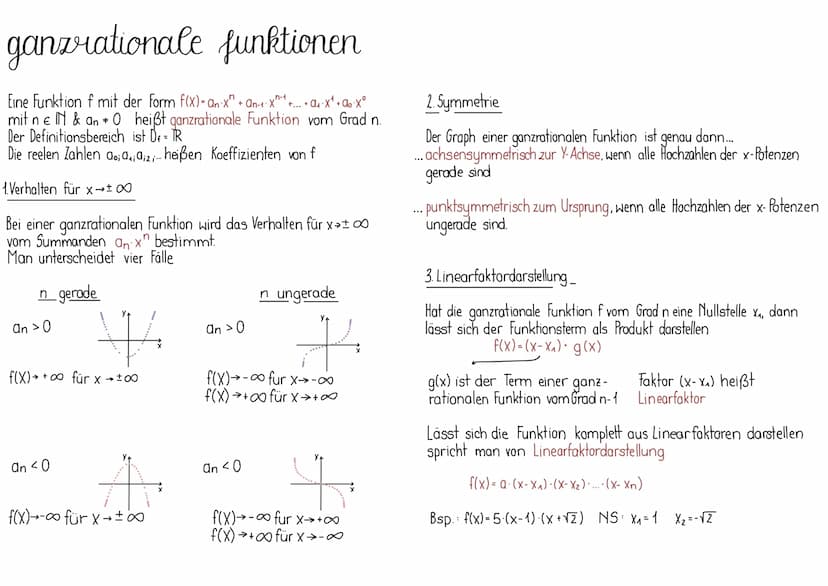 ganzrationale funktionen
Eine Funktion f mit der Form f(x)=aₙ·xⁿ+aₙ₋₁·xⁿ⁻¹+...+a₁·x¹+a₀·x⁰
mit n ∈ ℕ & aₙ ≠ 0 heißt ganzrationale Funktion vom Grad n.
Der Definitionsbereich ist D_f = ℝ
Die reelen Zahlen a₀; a₁; a₂;... heißen Koeffizienten von f
1.Verhalten für x→±∞
Bei einer ganzrationalen Funktion wird das Verhalten für x→±∞
vom Summanden aₙ·xⁿ bestimmt.
Man unterscheidet vier Fälle
n gerade
n ungerade
an > 0
y
x
an > 0
y
x
f(x)→+∞ für x→±∞
f(x)→-∞ für x→-∞
f(x)→+∞ für x→+∞
an < 0
y
x
an < 0
y
x
f(x)→-∞ für x→±∞
f(x)→-∞ für x→+∞
f(x)→+∞ für x→-∞
2. Symmetrie
Der Graph einer ganzrationalen Funktion ist genau dann...
...achsensymmetrisch zur Y-Achse, wenn alle Hochzahlen der x-Potenzen
gerade sind
... punktsymmetrisch zum Ursprung, wenn alle Hochzahlen der x-Potenzen
ungerade sind.
3. Linearfaktordarstellung
Hat die ganzrationale Funktion f vom Grad n eine Nullstelle x₁, dann
lässt sich der Funktionsterm als Produkt darstellen
f(x)=(x-x₁)·g(x)
g(x) ist der Term einer ganz-
rationalen Funktion vom Grad n-1
Faktor (x-x₁) heißt
Linearfaktor
Lässt sich die Funktion komplett aus Linearfaktoren darstellen
spricht man von Linearfaktordarstellung
f(x)=a·(x-x₁)·(x-x₂)·...·(x-xₙ)
Bsp.: f(x)=5·(x-1)·(x+√2) NS: x₁=1 x₂=-√2